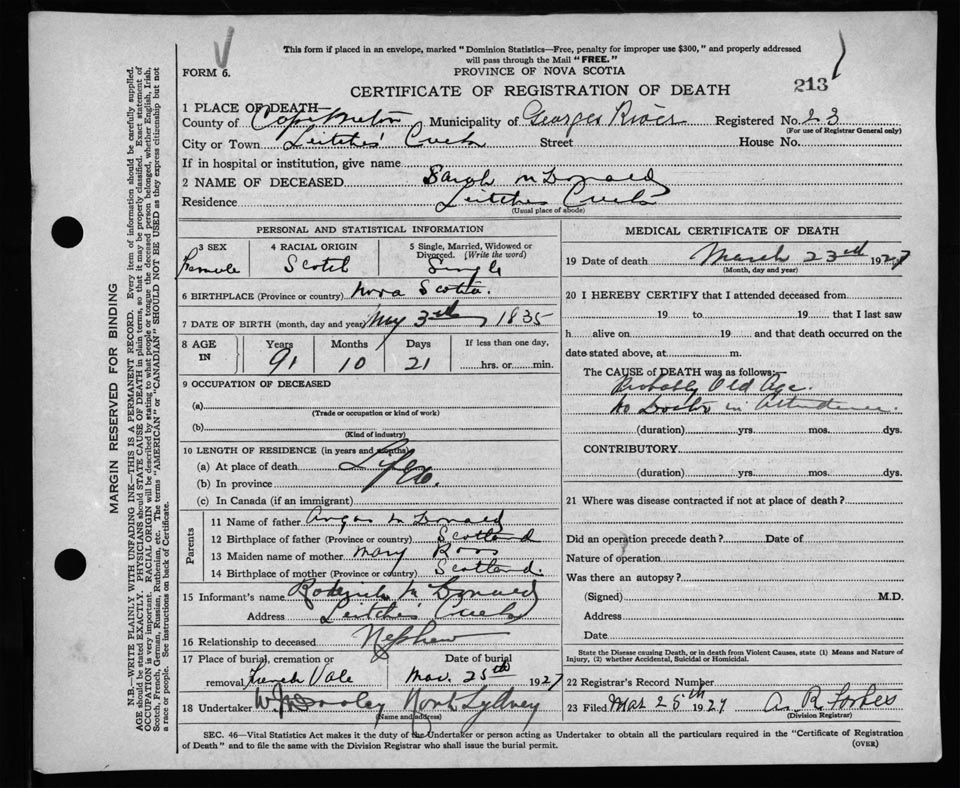 This form if placed in an envelope, marked "Dominion Statistics—Free, penalty for improper use $300," and properly addressed
will pass through the Mail "FREE."
FORM 6.
PROVINCE OF NOVA SCOTIA
213
CERTIFICATE OF REGISTRATION OF DEATH
1 PLACE OF DEATH—
County of Cape Breton Municipality of Georges River Registered No. 23
(For use of Registrar General only)
City or Town Leitches Creek Street House No.
If in hospital or institution, give name
2 NAME OF DECEASED Sarah McDonald
Residence Leitches Creek
(Usual place of abode)
PERSONAL AND STATISTICAL INFORMATION
3 SEX 4 RACIAL ORIGIN 5 Single, Married, Widowed or Divorced. (Write the word)
Female Scotch Single
6 BIRTHPLACE (Province or country) Nova Scotia.
7 DATE OF BIRTH (month, day and year) May 3rd 1835
8 AGE IN Years Months Days If less than one day,
91 10 21 hrs. or min.
9 OCCUPATION OF DECEASED
(a)
(Trade or occupation or kind of work)
(b)
(Kind of industry)
10 LENGTH OF RESIDENCE (in years and months)
(a) At place of death Life
(b) In province
(c) In Canada (if an immigrant)
Parents
11 Name of father Angus McDonald
12 Birthplace of father (Province or country) Scotland
13 Maiden name of mother Mary Ross
14 Birthplace of mother (Province or country) Scotland.
15 Informant's name Roderick McDonald
Address Leitches Creek
16 Relationship to deceased Nephew
17 Place of burial, cremation or Date of burial
removal French Vale Mar. 25th 1927
18 Undertaker W. J. Dooley North Sydney
(Name and address)
MEDICAL CERTIFICATE OF DEATH
19 Date of death March 23rd 1927
(Month, day and year)
20 I HEREBY CERTIFY that I attended deceased from
19 to 19 that I last saw
h alive on 19 and that death occurred on the
date stated above, at m.
The CAUSE of DEATH was as follows:—
Probably Old Age.
No Doctor in Attendance.
(duration) yrs. mos. dys.
CONTRIBUTORY
(duration) yrs. mos. dys.
21 Where was disease contracted if not at place of death?
Did an operation precede death? Date of
Nature of operation
Was there an autopsy?
(Signed) M.D.
Address
Date
State the Disease causing Death, or in death from Violent Causes, state (1) Means and Nature of
Injury, (2) whether Accidental, Suicidal or Homicidal.
22 Registrar's Record Number
23 Filed Mar 25th 1927 A. R. Forbes
(Division Registrar)
SEC. 46—Vital Statistics Act makes it the duty of the Undertaker or person acting as Undertaker to obtain all the particulars required in the "Certificate of Registration
of Death" and to file the same with the Division Registrar who shall issue the burial permit.
(OVER)
MARGIN RESERVED FOR BINDING
N.B.—WRITE PLAINLY WITH UNFADING INK—THIS IS A PERMANENT RECORD. Every item of information should be carefully supplied.
AGE should be stated EXACTLY. PHYSICIANS should STATE CAUSE OF DEATH in plain terms, so that it may be properly classified. Exact statement of
OCCUPATION is very important. RACIAL ORIGIN will be described by stating to what people or tongue the deceased person belonged, whether English, Irish,
Scotch, French, German, Russian, Ruthenian, etc. The terms "AMERICAN" or "CANADIAN" SHOULD NOT BE USED as they express citizenship but not
a race or people. See instructions on back of Certificate.